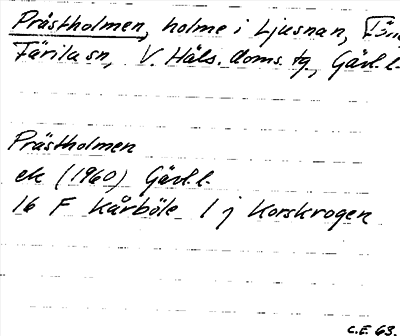 Prästholmen, holme i Ljusnan,
Färila sn, V. Häls. doms. tg, Gävl. l.
Prästholmen
ek (1960) Gävl. l.
16 F Kårböle 1 j Korskrogen
C.E. 63.